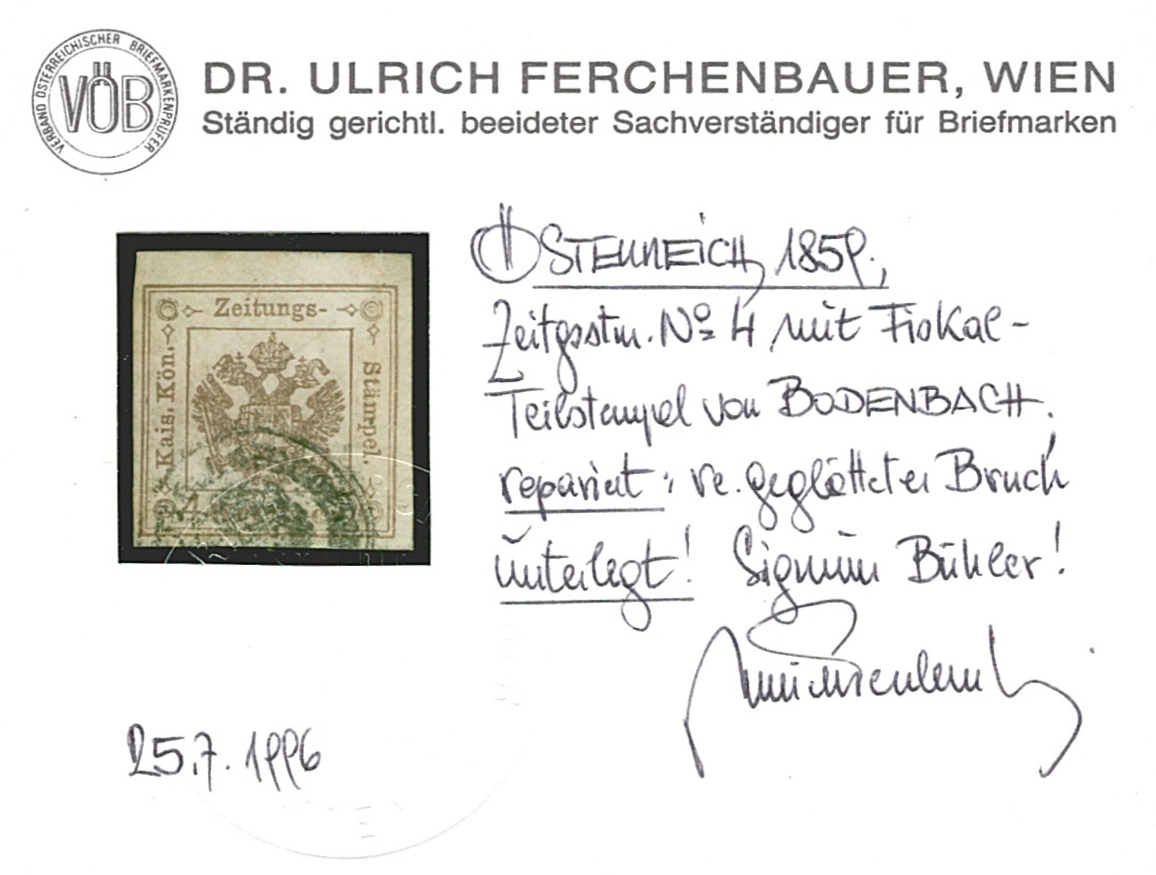 VERBAND ÖSTERREICHISCHER BRIEFMARKENPRÜFER
VÖB
DR. ULRICH FERCHENBAUER, WIEN
Ständig gerichtl. beeideter Sachverständiger für Briefmarken
Zeitungs-
Kais. Kön.
Stämpel.
4
ÖSTERREICH 1859,
Zeitgsstm. No 4 mit Fiskal-
Teilstempel von BODENBACH.
repariert: re. geglätteter Bruch
unterlegt! Signum Bühler!
25.7.1996